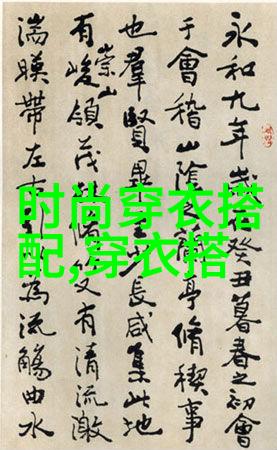 时尚穿衣搭
配,穿衣搭
永和九年歲癸丑暮春之初會
于會稽山陰亭脩稧事
也羣賢畢少長咸集此地
有崇山峻領茂脩又有清流激
湍暎帶左為流觴曲水